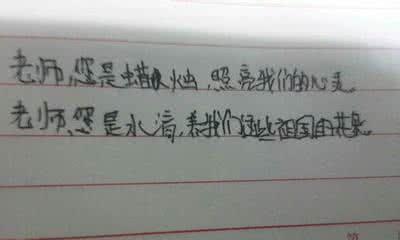 老师,您是蜡烛,照亮我们的心灵。
老师,您是水滴,养我们这些祖国的花朵。